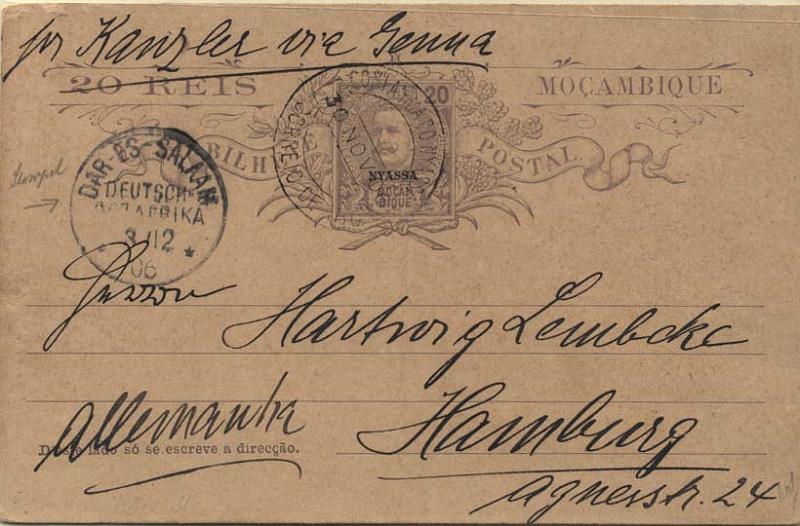 pr Kanzler via Genua
20 REIS MOÇAMBIQUE
20
BILH POSTAL
30 NOV
NYASSA
MOÇAM
BIQUE
Stempel
DAR-ES-SALAAM
DEUTSCH-
OSTAFRIKA
3/12
06
Herrn
Hartwig Lembcke
Allemanha
Hamburg
D'este lado só se escreve a direcção.
Agnesstr. 24